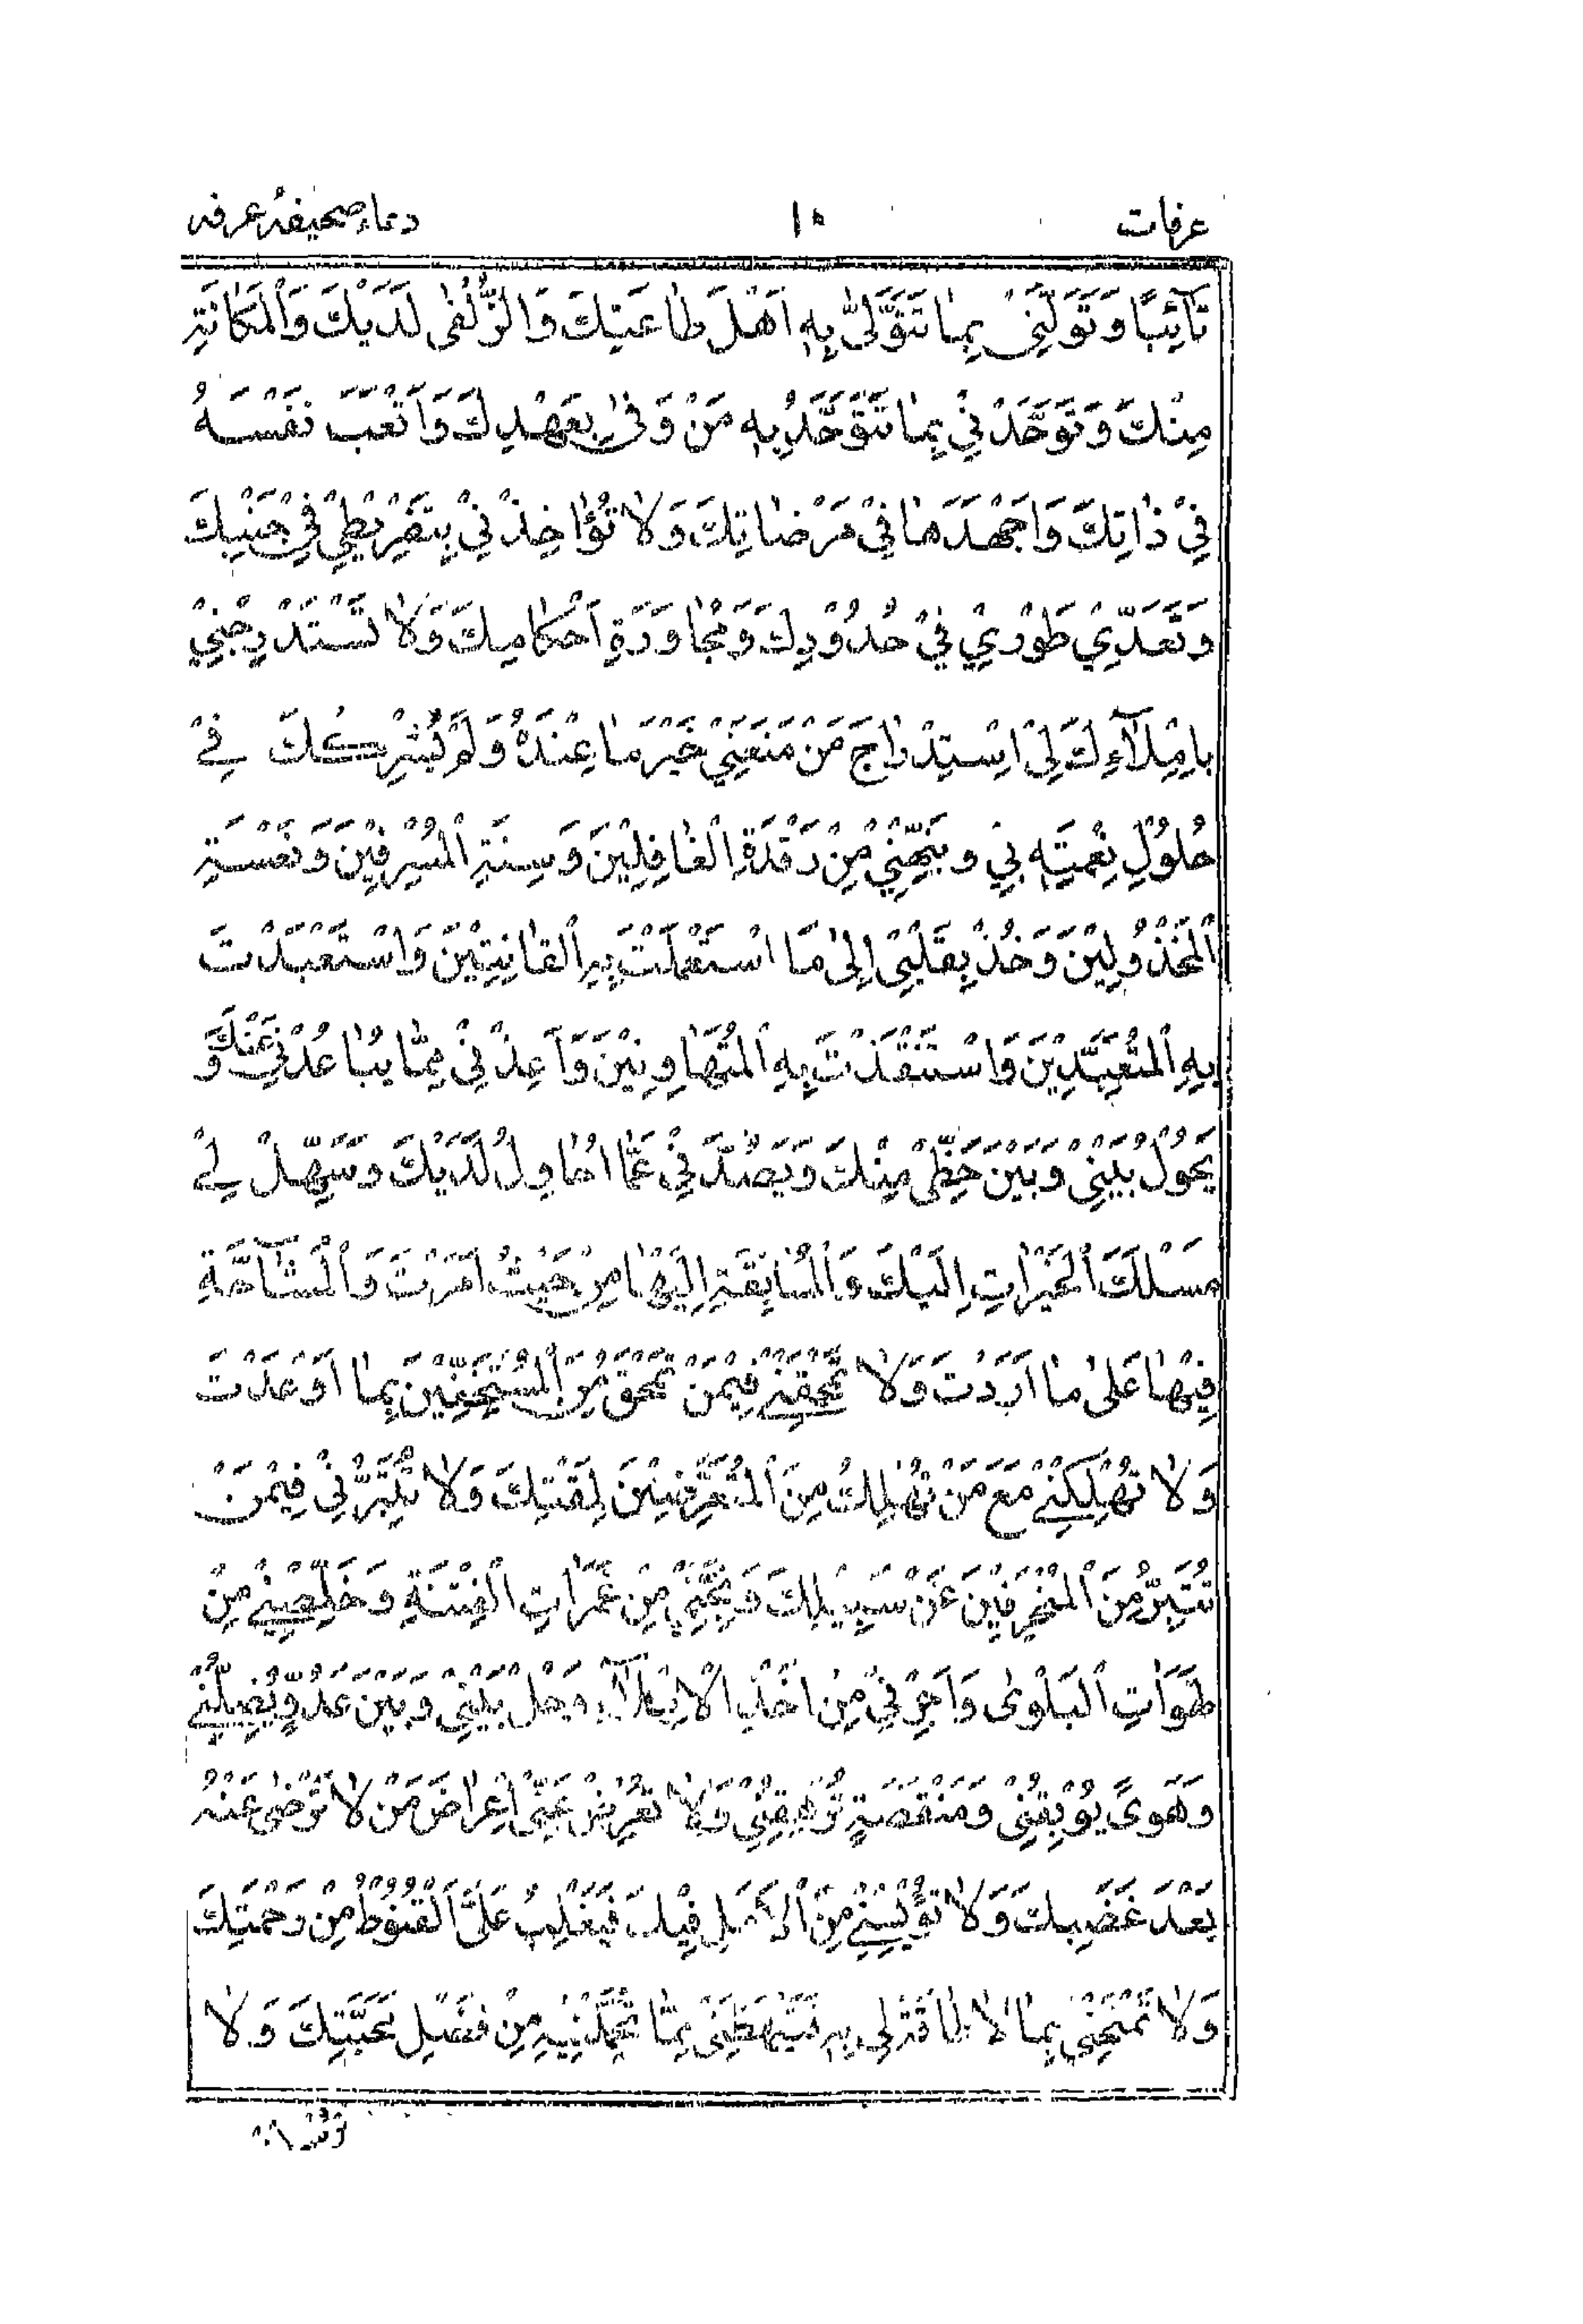 عرفات ١٥ دعاء صحیفۂ عرفہ
تَآئِبًا وَتَوَلَّنِيْ بِمَا تَتَوَلّٰى بِهٖ اَهْلَ طَاعَتِكَ وَالزُّلْفٰى لَدَيْكَ وَالْمَكَانَةِ
مِنْكَ وَتَوَحَّدْنِيْ بِمَا تَتَوَحَّدُ بِهٖ مَنْ وَفٰى بِعَهْدِكَ وَاَتْعَبَ نَفْسَهُ
فِيْ ذَاتِكَ وَاَجْهَدَهَا فِيْ مَرْضَاتِكَ وَلَا تُؤَاخِذْنِيْ بِتَفْرِيْطِيْ فِيْ جَنْبِكَ
وَتَعَدِّيْ طَوْرِيْ فِيْ حُدُوْدِكَ وَمُجَاوَزَةِ اَحْكَامِكَ وَلَا تَسْتَدْرِجْنِيْ
بِاِمْلَآءِكَ لِيْ اِسْتِدْرَاجَ مَنْ مَنَعَنِيْ خَيْرَ مَا عِنْدَهٗ وَلَمْ يُشْرِكْكَ فِيْ
حُلُوْلِ نِعْمَتِهٖ بِيْ وَنَبِّهْنِيْ مِنْ رَقْدَةِ الْغَافِلِيْنَ وَسِنَةِ الْمُسْرِفِيْنَ وَنَعْسَةِ
الْمَخْذُوْلِيْنَ وَخُذْ بِقَلْبِيْ اِلٰى مَا اسْتَعْمَلْتَ بِهِ الْقَانِتِيْنَ وَاسْتَعْبَدْتَ
بِهِ الْمُتَعَبِّدِيْنَ وَاسْتَنْقَذْتَ بِهِ الْمُتَهَاوِنِيْنَ وَاَعِذْنِيْ مِمَّا يُبَاعِدُنِيْ عَنْكَ وَ
يَحُوْلُ بَيْنِيْ وَبَيْنَ حَظِّيْ مِنْكَ وَيَصُدُّنِيْ عَمَّا اُحَاوِلُ لَدَيْكَ وَسَهِّلْ لِيْ
مَسْلَكَ الْخَيْرَاتِ اِلَيْكَ وَالْمُسَابَقَةِ اِلَيْهَا مِنْ حَيْثُ اَمَرْتَ وَالْمُشَآحَّةِ
فِيْهَا عَلٰى مَا اَرَدْتَ وَلَا تَمْحَقْنِيْ فِيْمَنْ تَمْحَقُ مِنَ الْمُسْتَخِفِّيْنَ بِمَا اَوْعَدْتَ
وَلَا تُهْلِكْنِيْ مَعَ مَنْ تُهْلِكُ مِنَ الْمُتَعَرِّضِيْنَ لِمَقْتِكَ وَلَا تُتَبِّرْنِيْ فِيْمَنْ
تُتَبِّرُ مِنَ الْمُنْحَرِفِيْنَ عَنْ سَبِيْلِكَ وَنَجِّنِيْ مِنْ غَمَرَاتِ الْفِتْنَةِ وَخَلِّصْنِيْ مِنْ
لَهَوَاتِ الْبَلْوٰى وَاَجِرْنِيْ مِنْ اَخْذِ الْاِمْلَآءِ وَحُلْ بَيْنِيْ وَبَيْنَ عَدُوٍّ يُضِلُّنِيْ
وَهَوًى يُوْبِقُنِيْ وَمَنْقَصَةٍ تَرْهَقُنِيْ وَلَا تُعْرِضْ عَنِّيْ اِعْرَاضَ مَنْ لَا تَرْضٰى عَنْهُ
بَعْدَ غَضَبِكَ وَلَا تُؤْيِسْنِيْ مِنَ الْاَمَلِ فِيْكَ فَيَغْلِبَ عَلَيَّ الْقُنُوْطُ مِنْ رَحْمَتِكَ
وَلَا تَمْنَحْنِيْ بِمَا لَا طَاقَةَ لِيْ بِهٖ فَتَبْهَظَنِيْ مِمَّا تُحَمِّلُنِيْهِ مِنْ فَضْلِ مَحَبَّتِكَ وَلَا